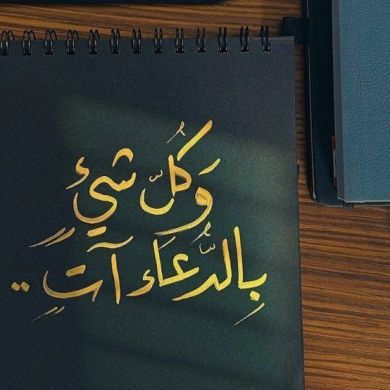 وَكُلّ شيءٍ
بِالدُّعَاء آتٍ ..